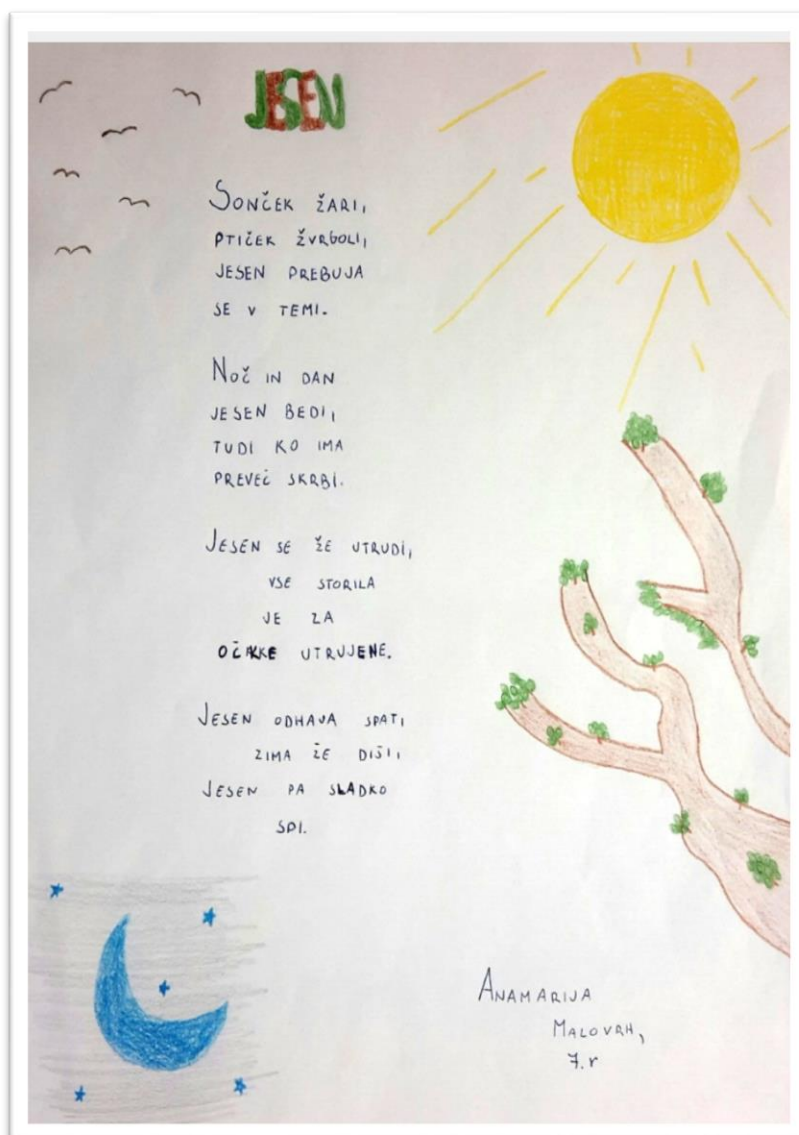 JESEN
SONČEK ŽARI,
PTIČEK ŽVRGOLI,
JESEN PREBUJA
SE V TEMI.
NOČ IN DAN
JESEN BEDI,
TUDI KO IMA
PREVEČ SKRBI.
JESEN SE ŽE UTRUDI,
VSE STORILA
JE ZA
UTRUJENE.
JESEN ODHAJA SPATI
ZIMA ŽE DIŠI,
JESEN PA SLADKO
SPI.
ANAMARIJA
MALOVRH,
7. r